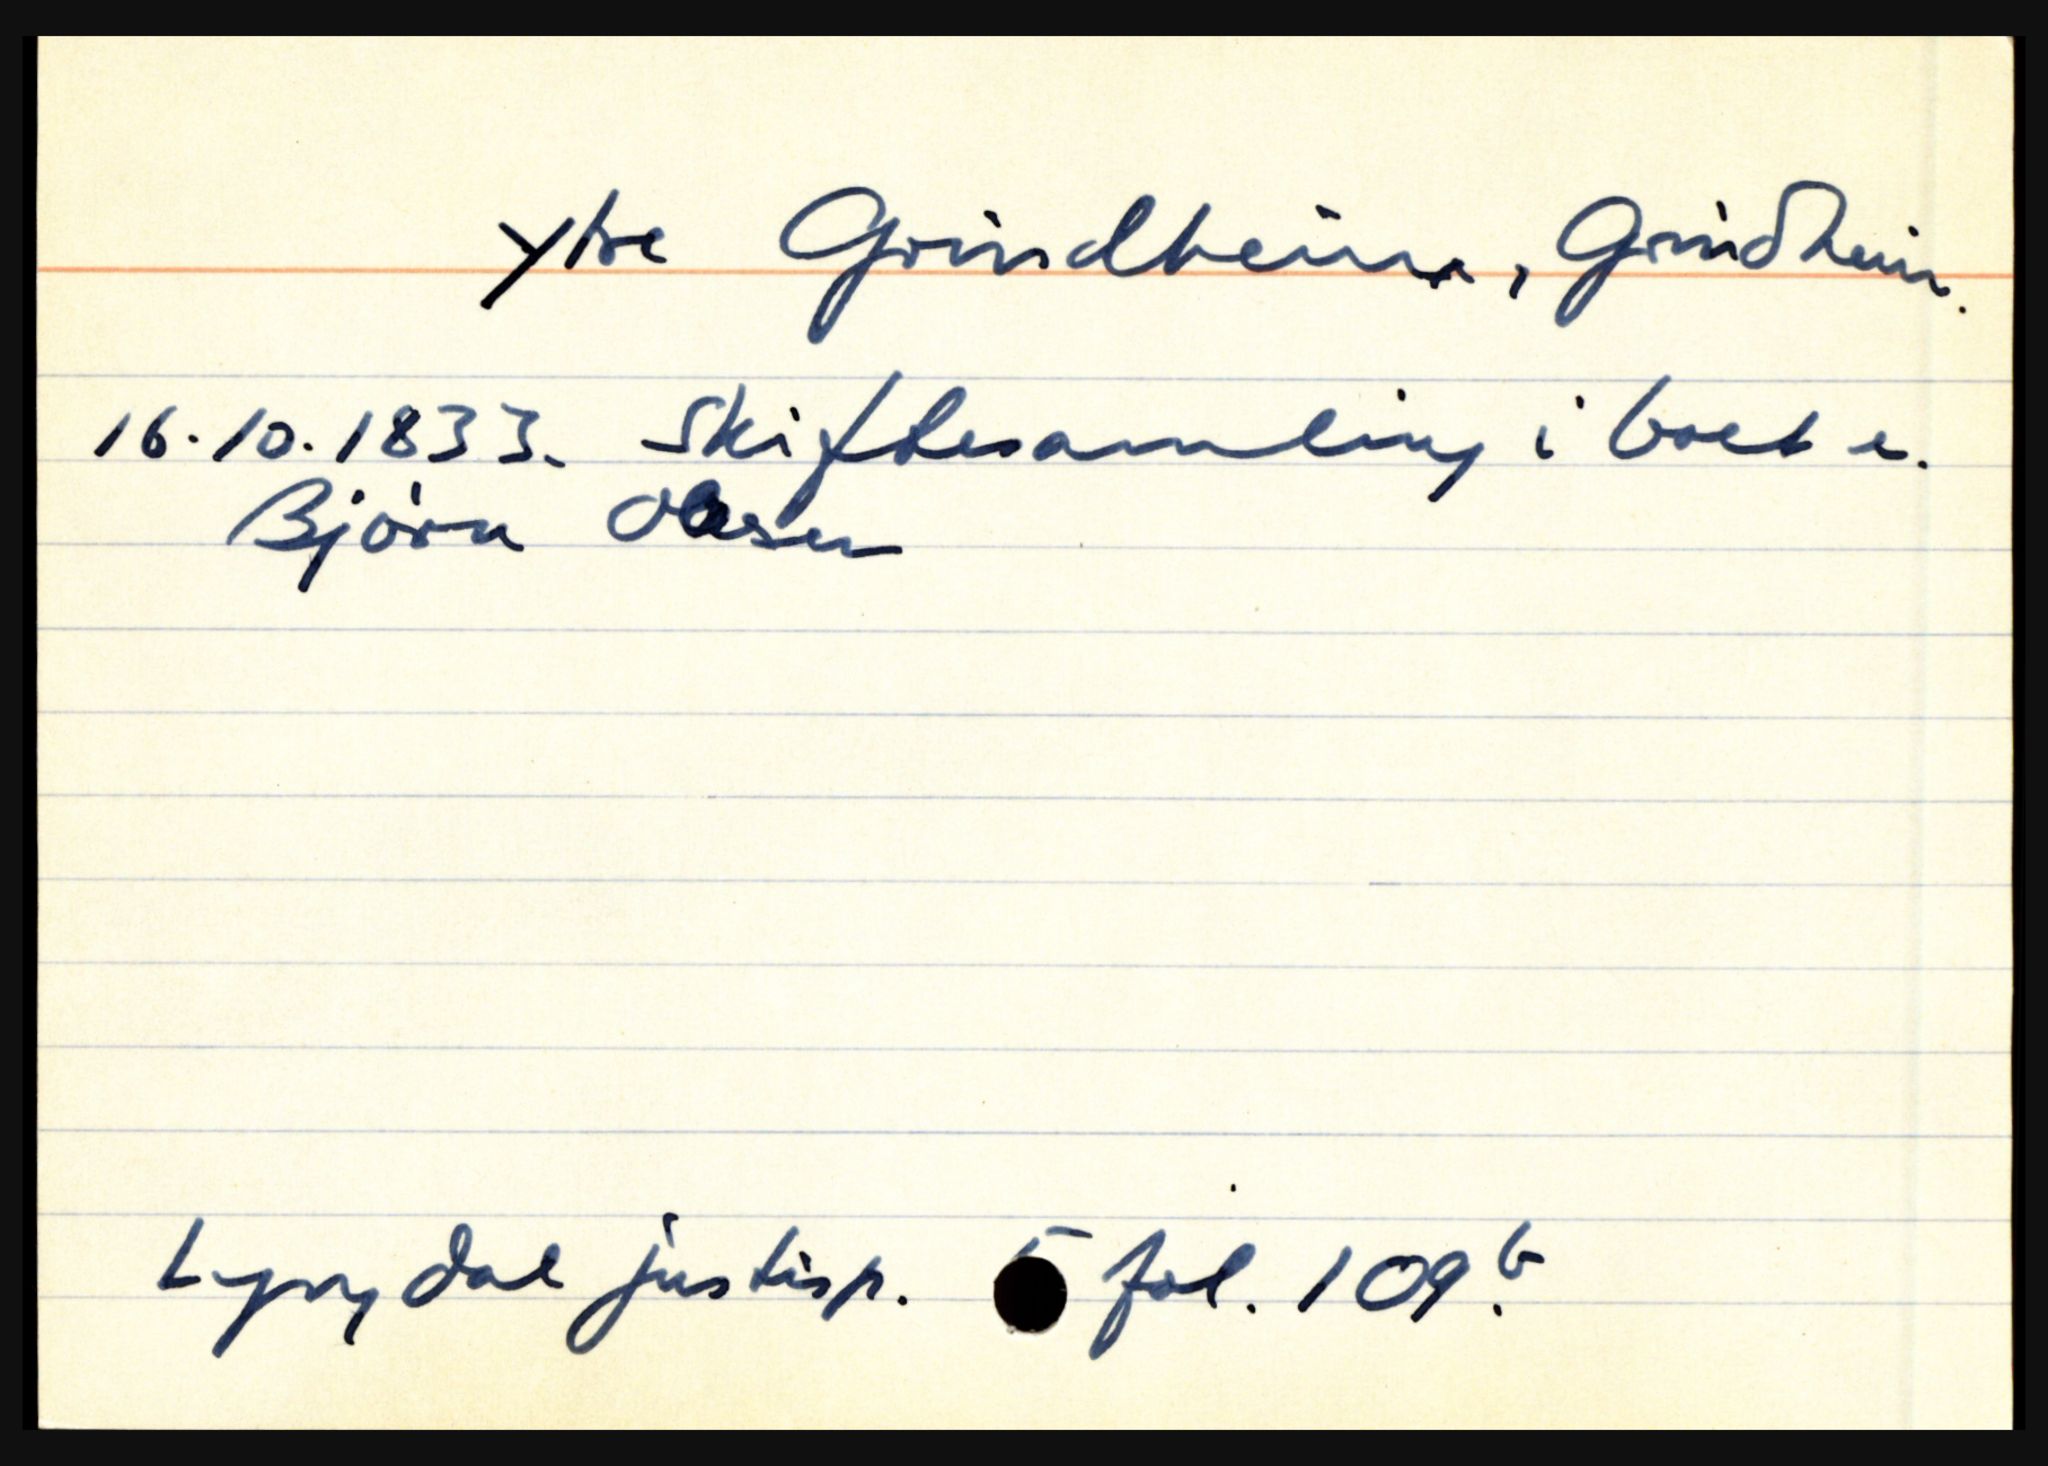 Ytre Grindheim, Grindheim.
16.10.1833. Skiftesamling i boet e.
Bjørn Olsen
Lyngdal justisp. 5 fol. 109.b